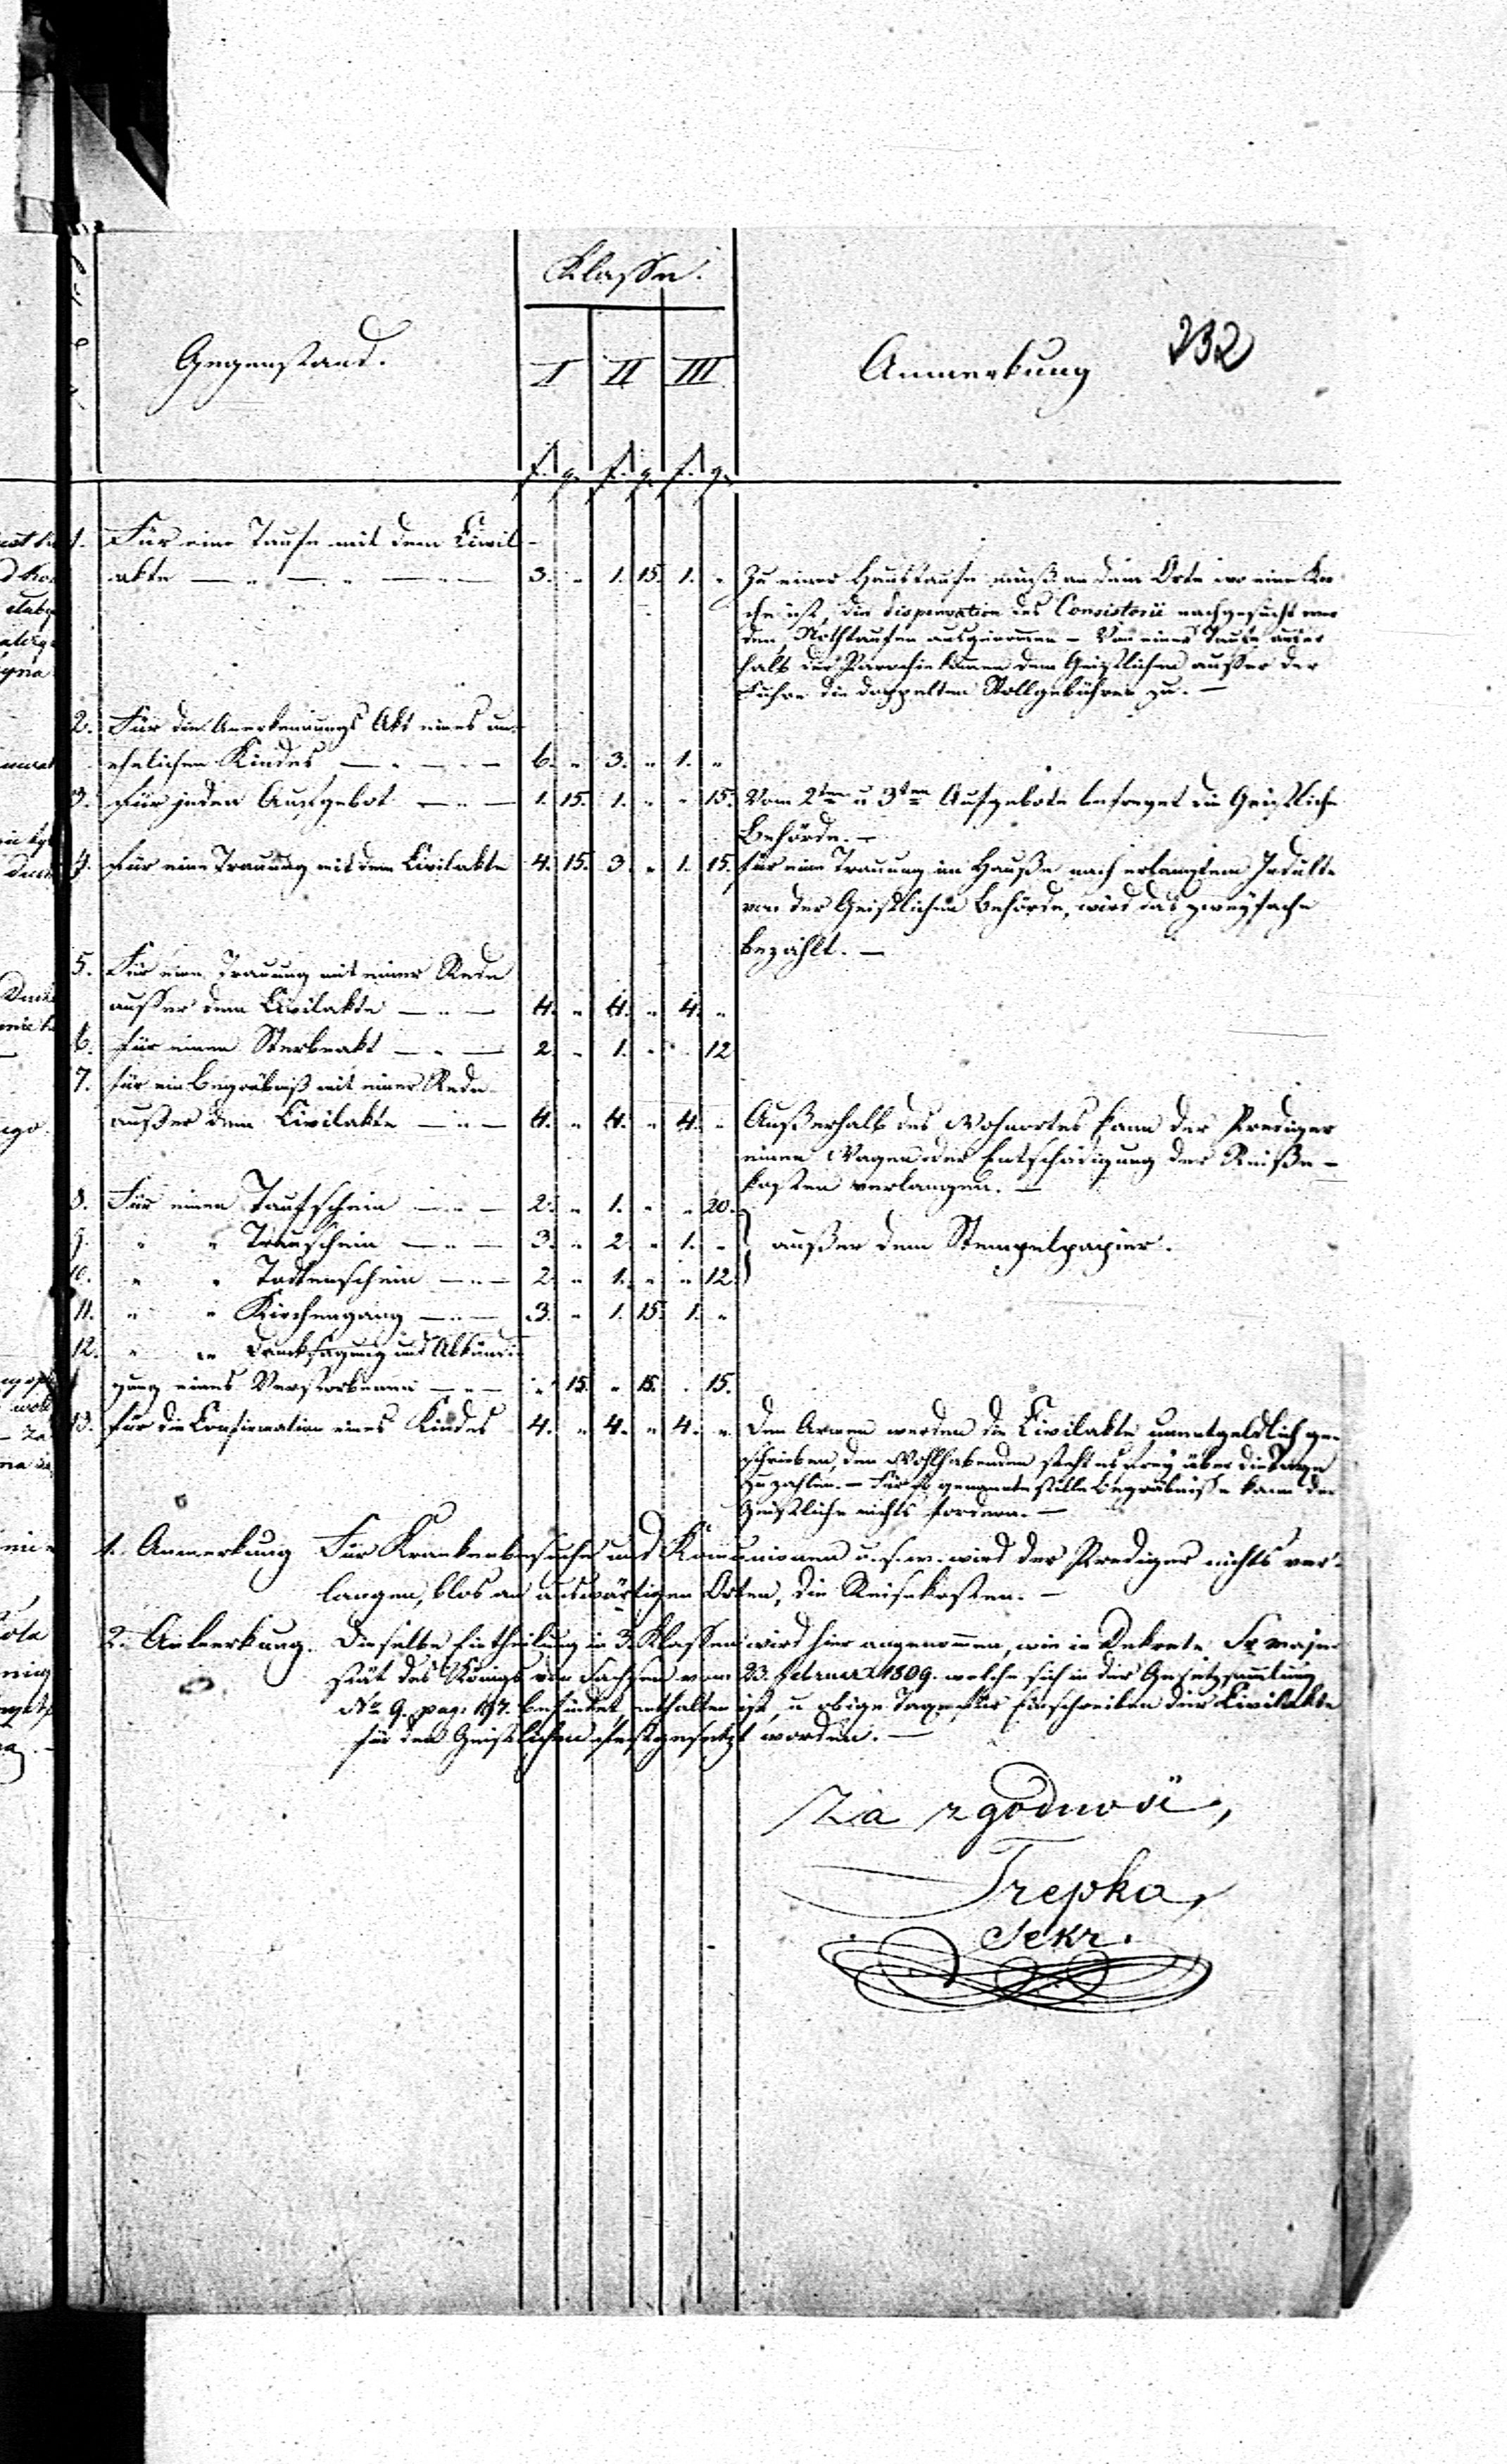 Klasse.
232
Gegenstand.
I II III
Anmerkung
f. g. f. g. f. g.
1. Für eine Taufe mit dem Civil-
akte — " — " — 3. " 1. 15. 1. " Zu einer Haustaufe muß an dem Orte wo eine Kir
che ist, die dispensation des Consistorii nachgesucht wer
den, Nothtaufen ausgenommen – Von einer Taufe ausser
halb der Parochie kommen dem Geistlichen ausser der
Fuhre die doppelten Stollgebühren zu. —
2. Für die Anerkennungs Akt eines un-
ehelichen Kindes — " — 6. " 3. " 1. "
3. für jeden Aufgebot — " — 1. 15. 1. " " 15. Vom 2ten u 3ten Aufgebote befreyet die Geistliche
Behörde. —
4. für eine Trauung mit dem Civilakte 4. 15. 3. " 1. 15. für eine Trauung im Hauße nach erlangtem Indulte
von der Geistlichen Behörde, wird das zweyfache
bezahlt. —
5. Für eine Trauung mit einer Rede
ausser dem Civilakte — " — 4. " 4. " 4. "
6. für einen Sterbeakt — " — 2. " 1. " " 12
7. für ein Begräbniß mit einer Rede
außer dem Civilakte — " — 4. " 4. " 4. " Außerhalb des Wohnortes kann der Prediger
einen Wagen oder Entschädigung der Reiße-
kosten verlangen. —
8. Für einen Taufschein — " — 2. " 1. " " 20.
9. " " Trauschein — " — 3. " 2. " 1. " außer dem Stempelpapier.
10. " " Todtenschein — " — 2. " 1. " " 12.
11. " " Kirchengang — " — 3. " 1. 15. 1. "
12. " " Danksagung und Abkündi
gung eines Verstorbenen — " — " 15. " 15. " 15.
13. für die Confirmation eines Kindes 4. " 4. " 4. " Den Armen werden die Civilakte unentgeldlich ge-
schrieben, den Wohlhabenden steht es frey über die Taxe
zu zahlen. – Für so genannte stille Begräbnisse kann der
Geistliche nichts fordern. —
1. Anmerkung Für Krankenbesuche und Kommunionen u. s. w. wird der Prediger nichts ver-
langen, blos an auswärtigen Orten, die Reisekosten. —
2. Anmerkung. Dieselbe Eintheilung in 3. Klassen wird hier angenommen, wie im Dekrete Sr maje-
stät des Königs von Sachsen vom 23. februar 1809. welche sich in der Gesetzsammlung
No 9. pag. 197. befindet, enthalten ist, u obige Taxe für Einschreiben der Civilakte
für den Geistlichen festgesetzt worden. —
Za zgodność,
Trepka,
Sekr.